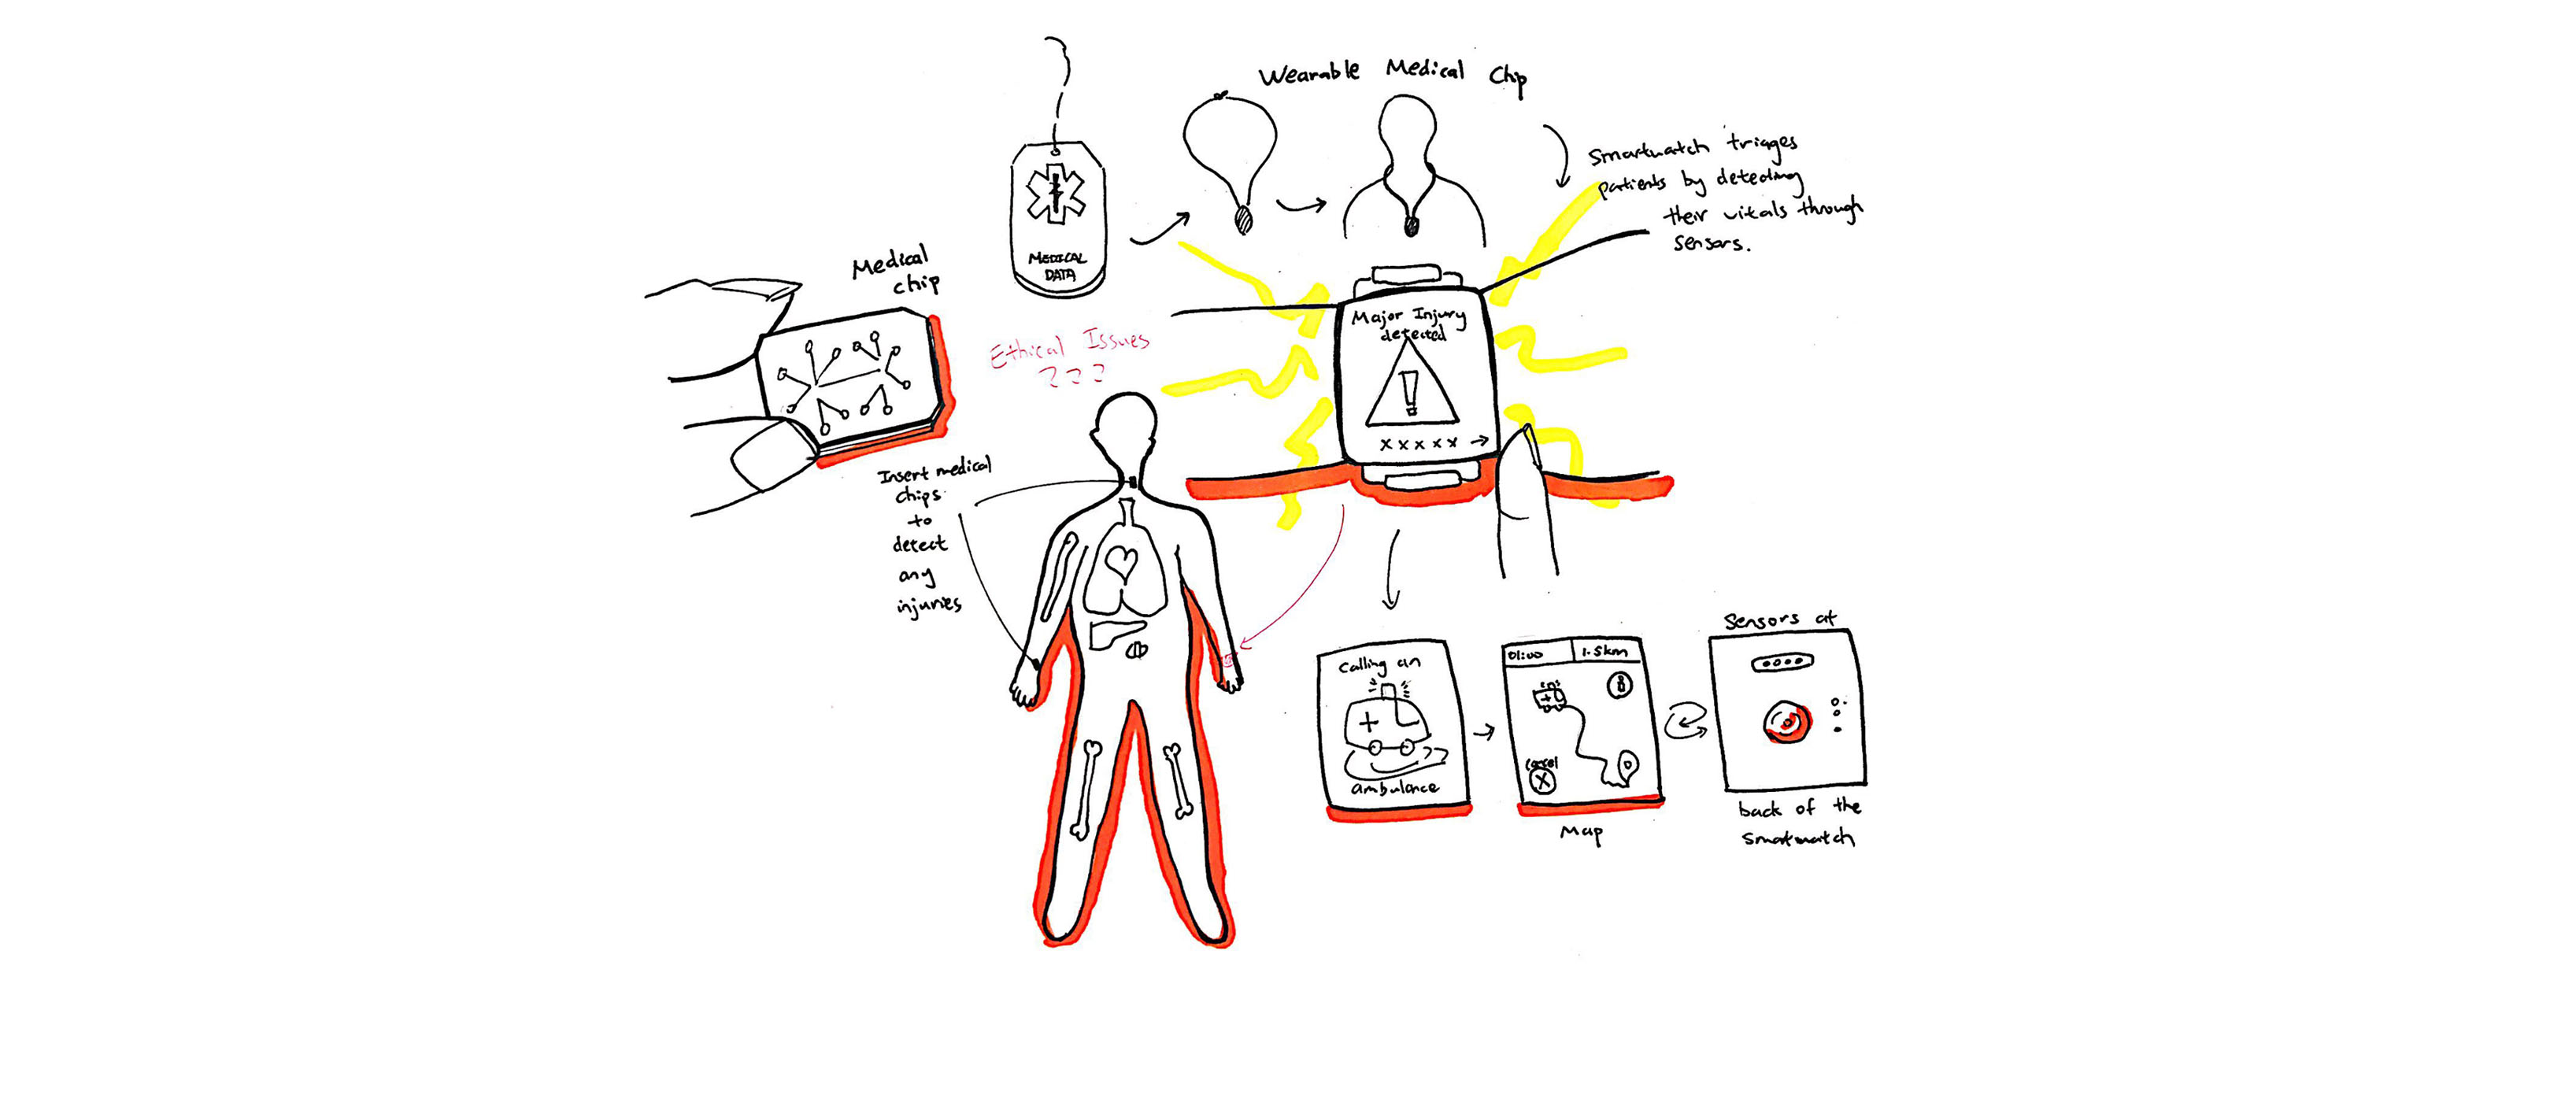 Wearable Medical Chip
Smartwatch triages
patients by detecting
their vitals through
sensors.
MEDICAL
DATA
Medical
chip
Ethical Issues
???
Major Injury
detected
!
xxxxx →
Insert medical
chips
to
detect
any
injuries
Calling an
ambulance
01:00 1.5km
cancel
X
Map
Sensors at
back of the
smartwatch